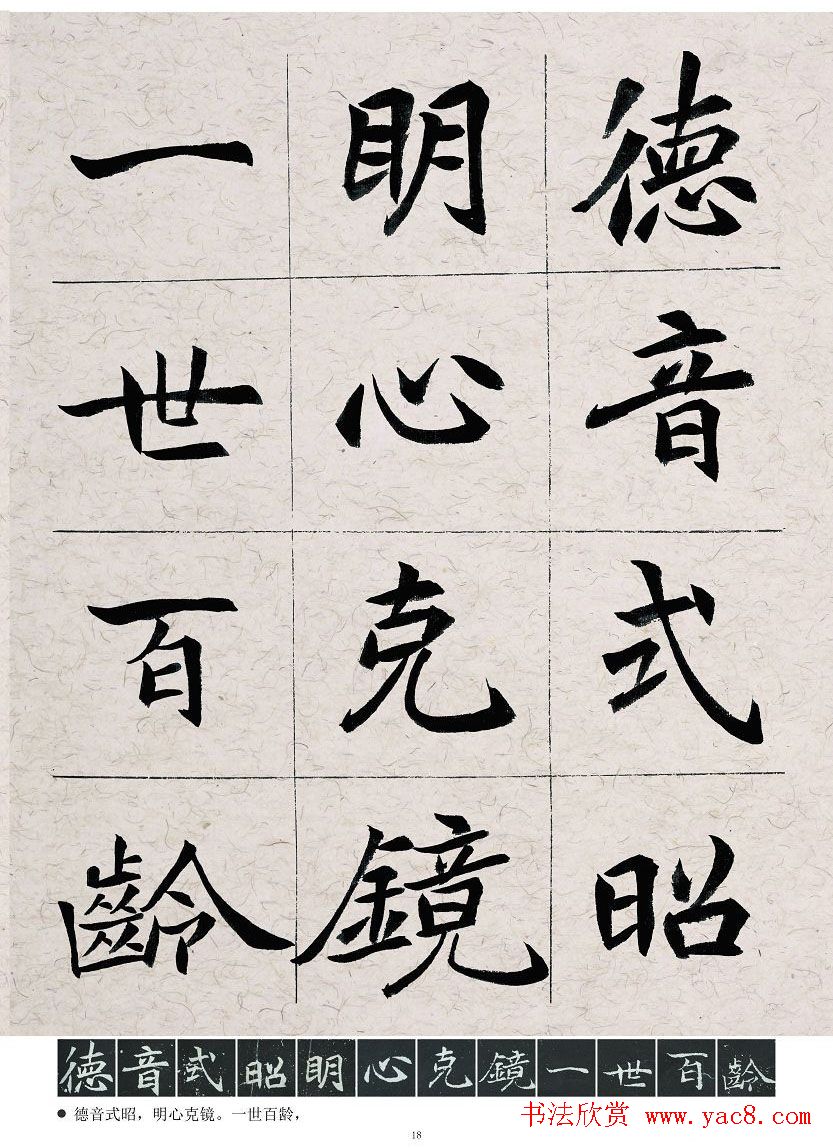 德音式昭
明心克鏡
一世百齡
德音式昭明心克鏡一世百齡
● 德音式昭，明心克镜。一世百龄，
书法欣赏 www.yac8.com
18